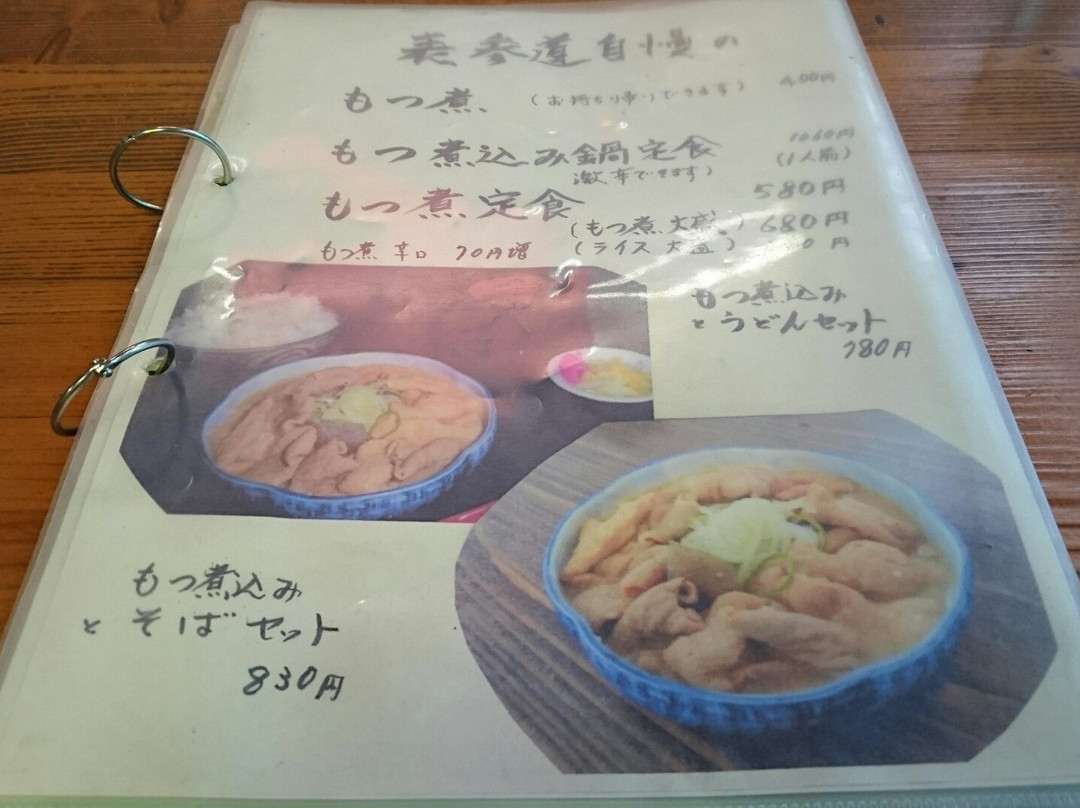 表参道自慢の
もつ煮 (お持ち帰りできます) 400円
もつ煮込み鍋定食 1060円
(1人前)
激辛できます)
もつ煮定食 580円
(もつ煮大盛) 680円
もつ煮 辛口 70円増 (ライス大盛) 円
もつ煮込み
とうどんセット
780円
もつ煮込み
と そばセット
830円